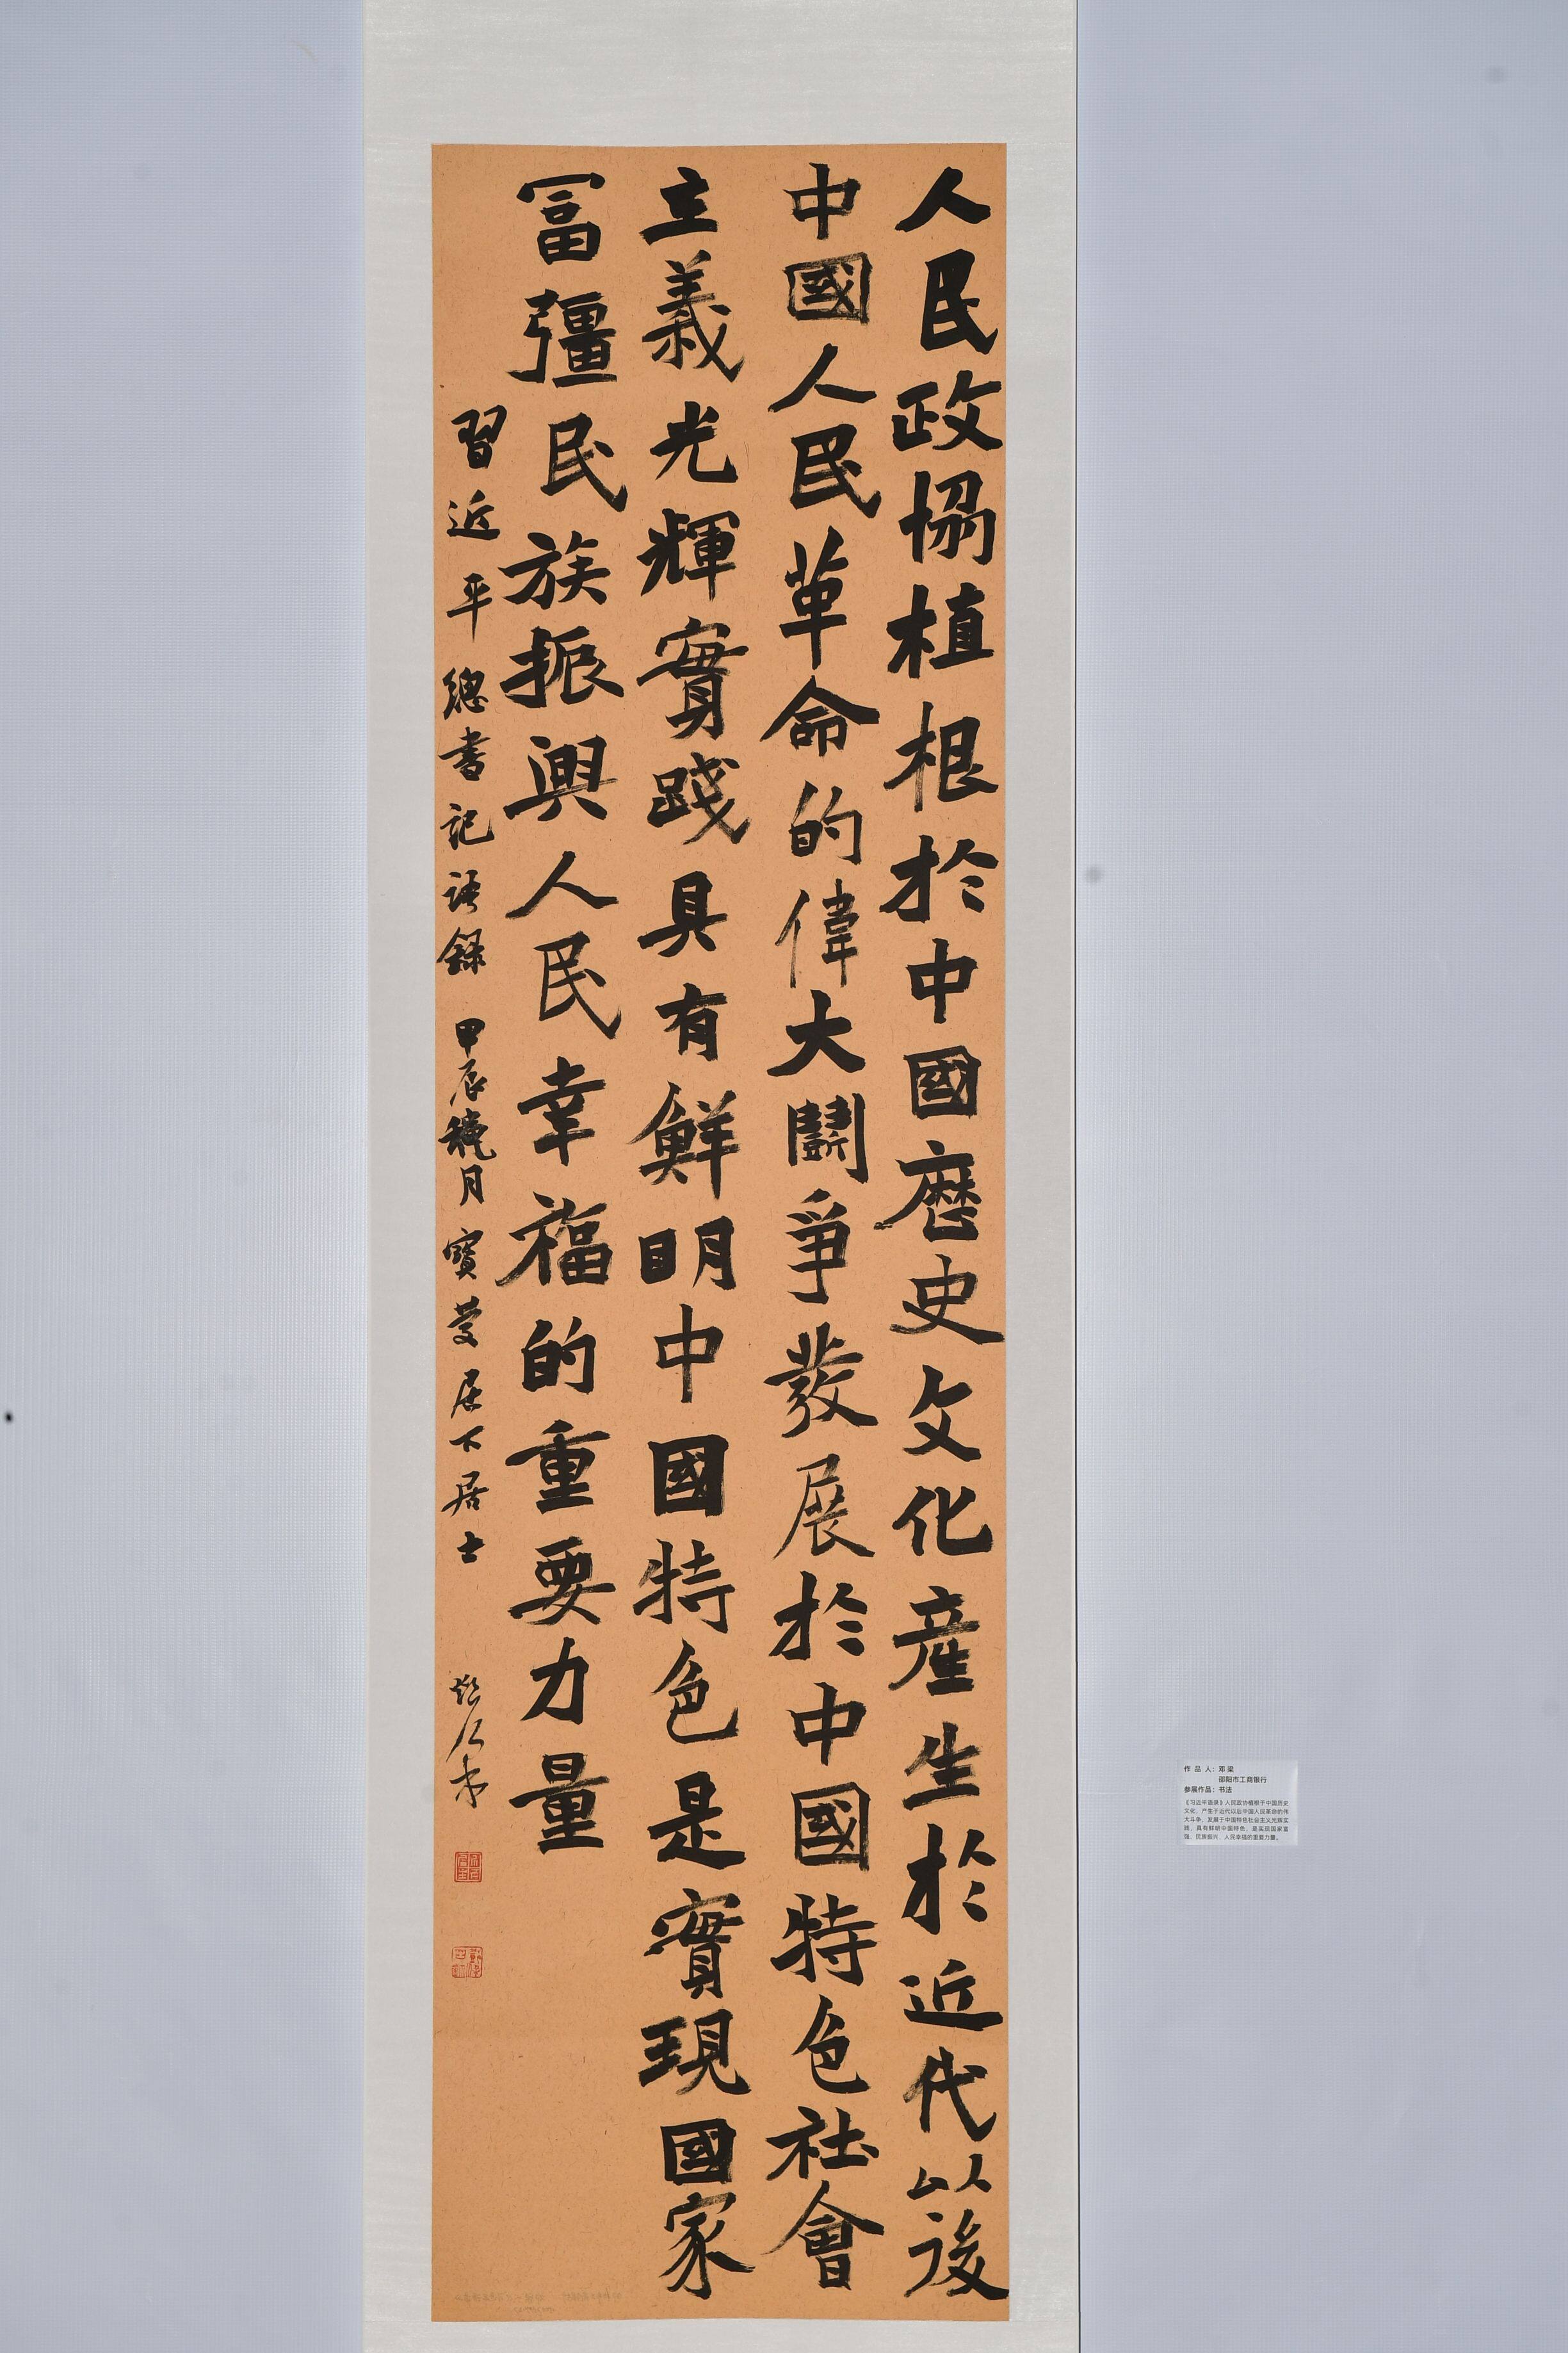 人民政協植根於中國歷史文化産生於近代以後
中國人民革命的偉大鬭爭發展於中國特色社會
主義光輝實踐具有鮮明中國特色是實現國家
富彊民族振興人民幸福的重要力量
習近平總書記語錄 甲辰穐月寶慶居下居士
作品人：邓梁
邵阳市工商银行
参展作品：书法
《习近平语录》人民政协植根于中国历史
文化，产生于近代以后中国人民革命的伟
大斗争，发展于中国特色社会主义光辉实
践，具有鲜明中国特色，是实现国家富
强、民族振兴、人民幸福的重要力量。